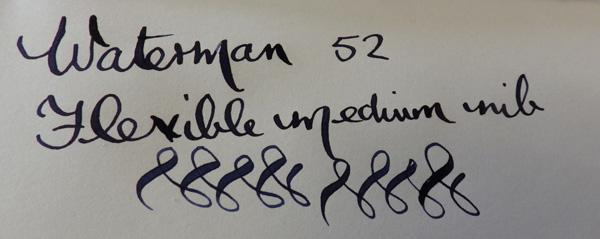 Waterman 52
Flexible medium nib